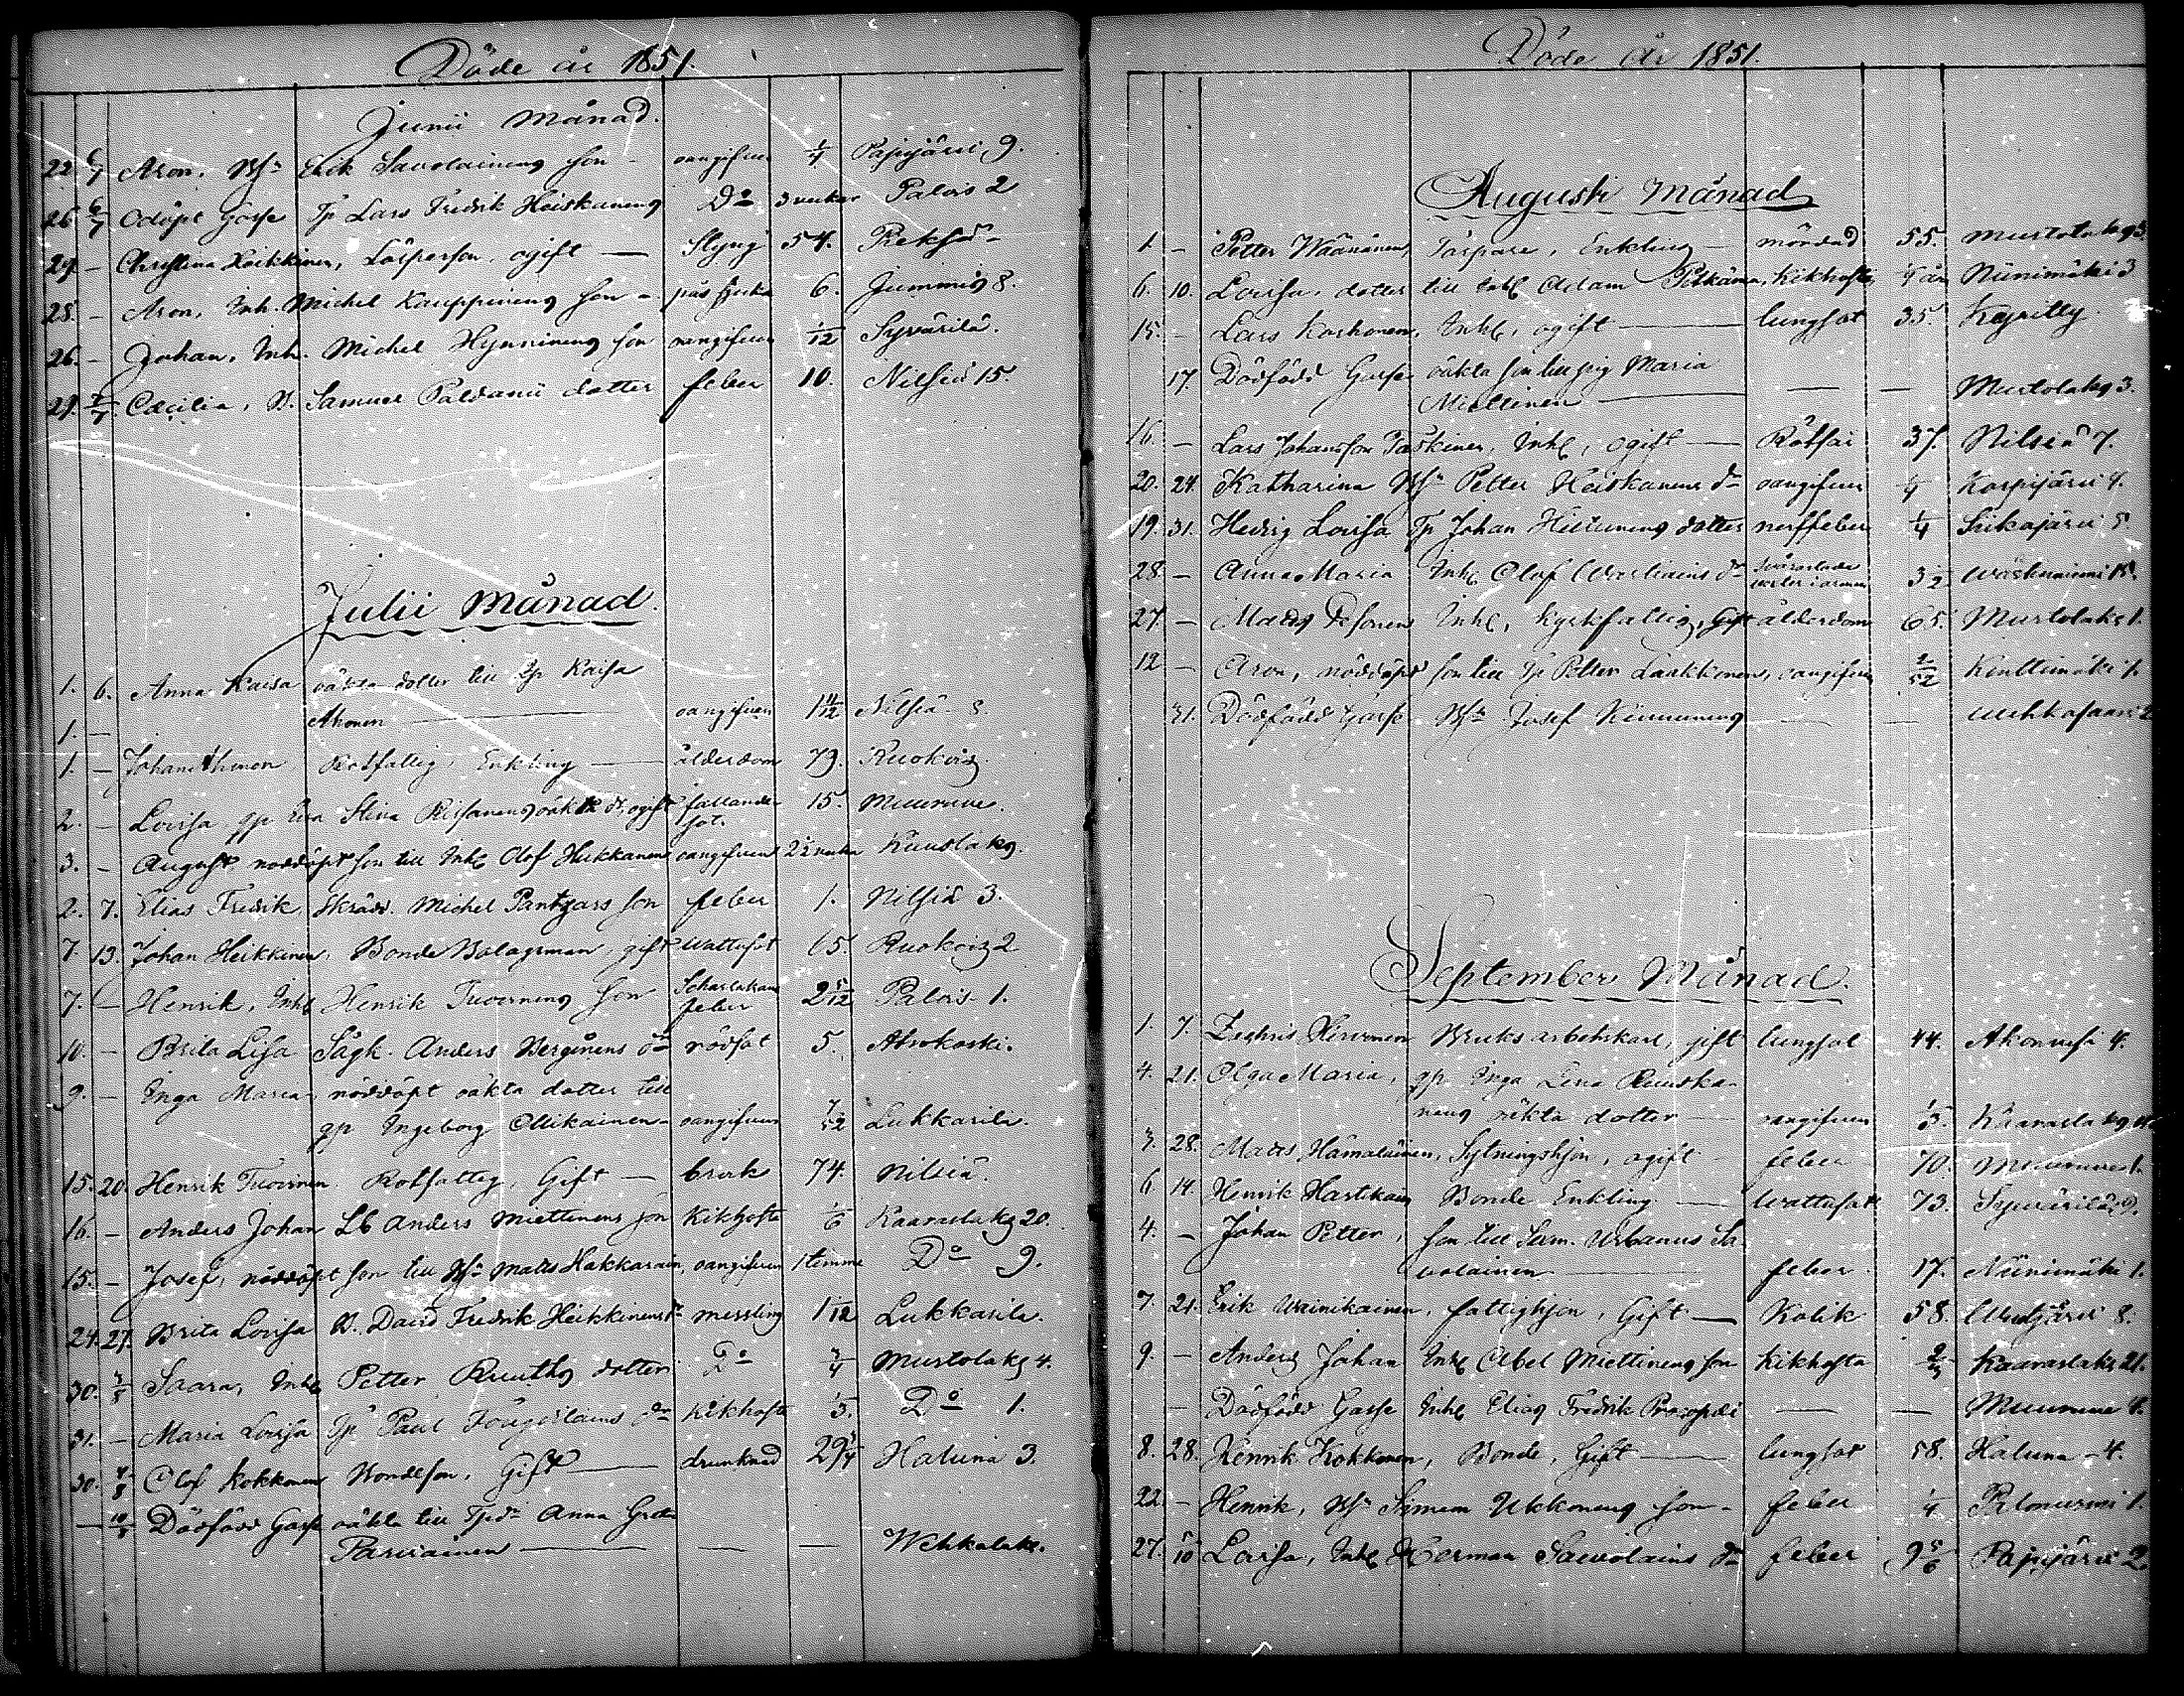 Döde år 1851.
Junii Månad.
22. 6/7 Aron, Bs Erik Savolainens son - oangifven 1/4 Pajujärvi 9.
26 6/7 Odöpt Gosse Tp Lars Fredrik Heiskanens Do 3 veckor Palois 2
29. - Christina Heikkinen, Lösperson, ogift — Slyng 54.
25. - Aron, Inh. Michel Kauppinens son - 6. Jummis 8.
26. - Johan, Inh. Michel Hynninens son oangifven 1/12 Syvärilä.
29. 7/7 Cæcilia, B. Samuel Paldanii dotter feber 10. Nilsiä 15.
Julii Månad.
1. 6. Anna Kaisa oäkta dotter till Tp Kaisa
Ahonen — oangifven 1 11/12 Nilsiä 8.
1. -
1. - Johan Ahonen Rotfattig, Enkling — ålderdom 79. Ruokois.
2. - Lovisa qp Eva Stina Rissanens oäkta dr, ogift fallande sot. 15. Muuruve.
3. - August, nöddöpt son till Inh Olof Hukkanens oangifven 2½ veckor Kuuslaks.
2. 7. Elias Fredrik Skrädd. Michel Pantzars son feber 1. Nilsiä 3.
7. 13. Johan Heikkinen, Bonde Bolagsman, gift Wattusot 65. Ruokois 2
7. - Henrik, Inh Henrik Tuovinens son Scharlakans feber 2 5/12 Palois 1.
10. - Brita Lisa Sågk. Anders Bergönens dr rödsot 5. Ahokoski.
9. - Inga Maria nöddöpt oäkta dotter till
qp Ingeborg Ollikainen - oangifven 7/52 Lukkarila.
15. 20. Henrik Tuovinen Rotfattig, Gift — brock 74. Nilsiä.
16. - Anders Johan Lb Anders Miettinens son Kikhosta 1/6 Kaaraslaks 20.
15. - Josef, nöddöpt son till Bs Mats Hakkarain, oangifven 1 timme Do 9.
24. 27. Brita Lovisa B. David Fredrik Heikkinens dr Messling 1 1/12 Lukkarila.
30. 3/8 Saara, Inh Petter Knuths dotter Do 3/4 Murtolaks 4.
31. - Maria Lovisa Tp Paul dr Kikhosta 1/3. Do 1.
30. 4/8 Olof Kokkonen Bondeson, Gift — drunknad 29 3/4 Haluna 3.
- 10/8 Dödfödd Gosse oäkta till Tpdr Anna Greta
Parviainen — — — Wehkalaks.
Döde år 1851.
Augusti Månad
1. - Petter Wäänänen, Torpare, Enkling — mördad 55. Murtolaks 3
6. 10. Lovisa, dotter till Inh Adam Pitkänen, Kikhosta, 4 år Niinimäki 3
15. - Lars Korhonen, Inh, ogift — lungsot 35.
17. Dödfödd Gosse oäkta son till pig Maria
Miettinen — — — Murtolaks 3.
16. - Lars Johansson Taskinen, Inh, ogift — Rötfeber 37. Nilsiä 7.
20. 24. Katharina Bs Petter Heiskanens dr oangifven 1/4 Korpijärvi 4.
19. 31. Hedvig Lovisa Tp Johan Hiltunens dotter nerffeber 1/4 Siikajärvi 5
28. - Anna Maria Inh Olof Wartiains dr 3 1/2
27. - Mats Inh, kyrkfattig, Gift ålderdom 65. Murtolaks 1.
12 - Aron, nöddöpt son till Tp Petter Laakkonen, oangifven 2/52 Konttimäki 1.
31. Dödfödd Gosse Bs Josef Kinnunens — —
September Månad.
1. 7. Zachris Hirvonen Bruks arbetskarl, gift lungsot 44. Akonvesi 4.
4. 21. Olga Maria, qp Inga Lena Ruuska-
nens oäkta dotter — oangifven 1/3. Kaaraslaks
3. 28. Mats Hämäläinen, Sytningshjon, ogift - feber 70. Muuruves 1.
6 14. Henrik Hartikain Bonde Enkling — Wattusot 73. Syvärilä 9.
4. - Johan Petter, son till Urbanus Sa-
volainen — feber 17. Niinimäki 1.
7. 21. Erik Wainikainen, fattighjon, Gift — Kolik 58. 8.
9. - Anders Johan Inh Abel Miettinens son Kikhosta Kaaraslaks 21.
- Dödfödd Gosse Inh Elias Fredrik Procopæi — — Muuruve 4.
8. 28. Henrik Kokkonen, Bonde, Gift — lungsot 58. Haluna - 4.
22. - Henrik, Bs Simeon Ukkonens son - feber 1/4 Palonurmi 1.
27. 5/10 Lovisa, Inh Herman Savolains dr feber 9 5/6 Pajujärvi 2